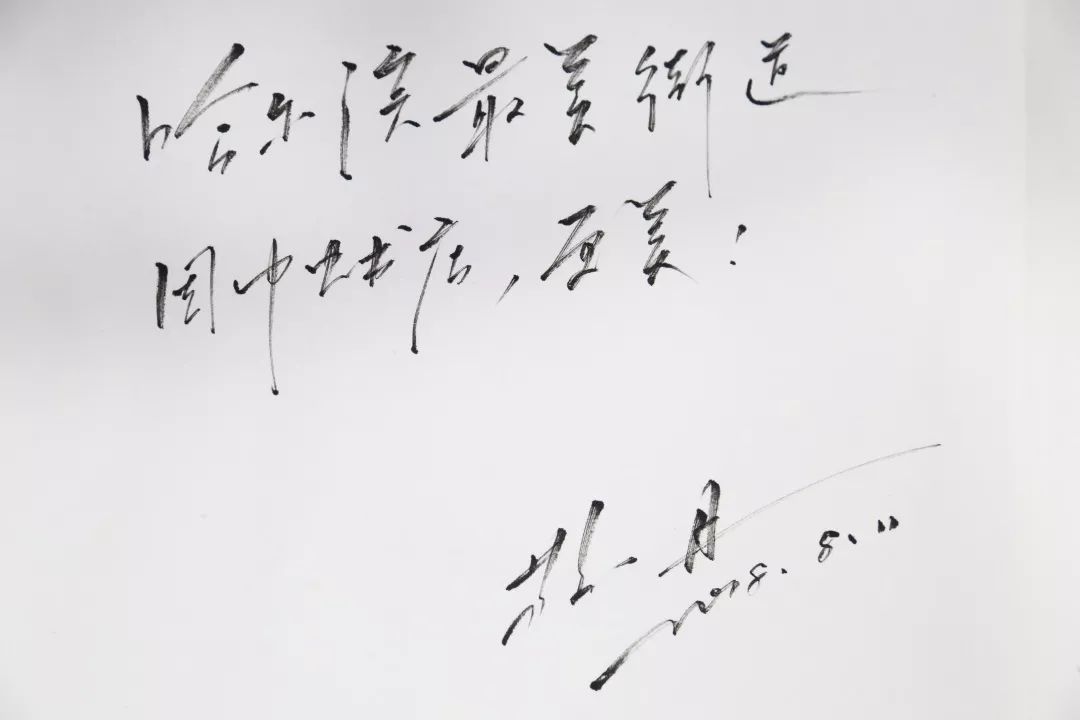 哈尔滨最美街道
因中央书店，更美！
丹
2018.8.11